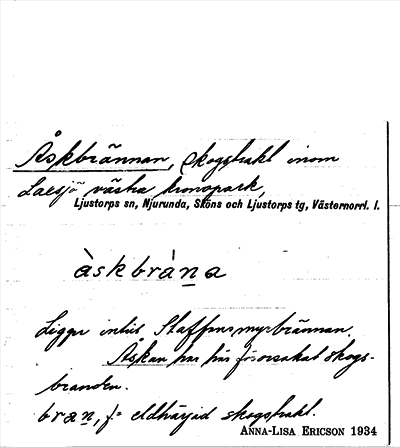 Åskbrännan, skogstrakt inom
Laxsjö västra kronopark,
Ljustorps sn, Njurunda, Sköns och Ljustorps tg, Västernorrl. l.
àskbràna
Ligger intill Staffansmyrbrännan.
Åskan har här förorsakat skogs-
branden.
bran, f= eldhärjad skogstrakt.
ANNA-LISA ERICSON 1934